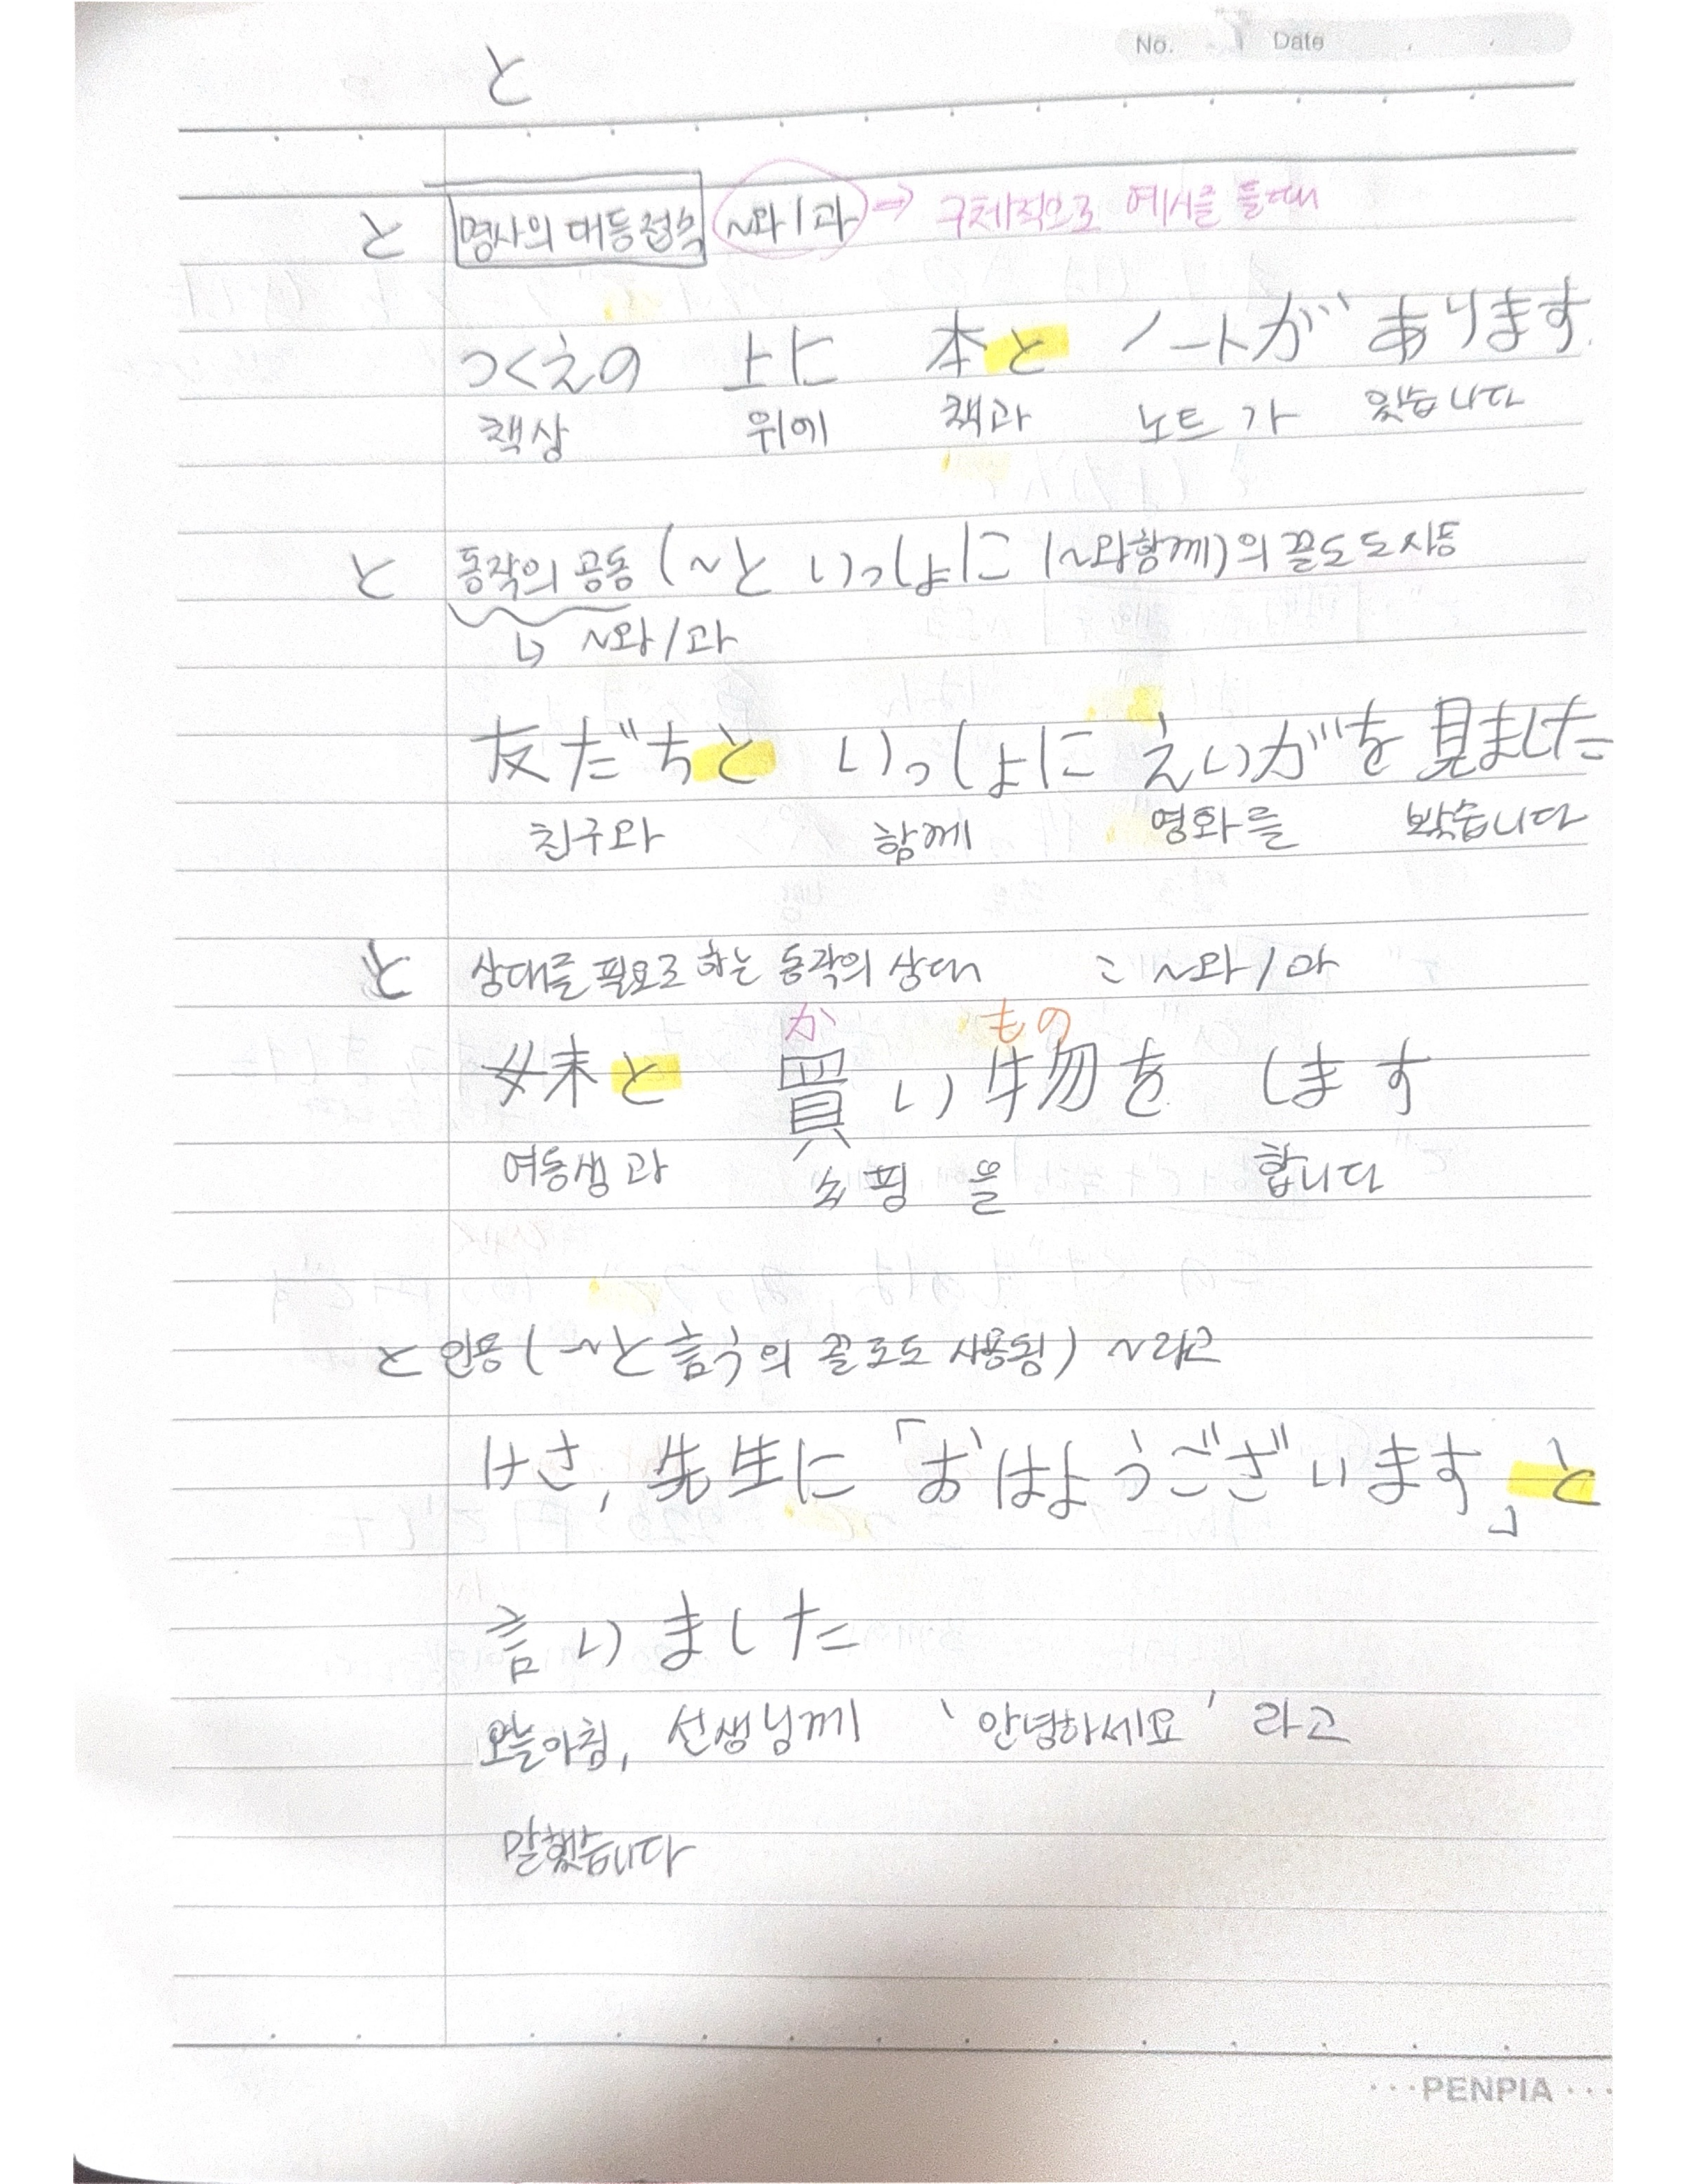 No. Date
と
と 명사의 대등접속 ~와/과 → 구체적으로 예시를 들때
つくえの 上に 本と ノートが あります.
책상 위에 책과 노트가 있습니다
と 동작의 공동 (~と いっしょに (~와함께)의 끌도도사동
↳ ~와/과
友だちと いっしょに えいがを 見ました
친구와 함께 영화를 봤습니다
と 상대를 필요로 하는 동작의 상대 : ~와/과
か もの
妹と 買い物を します
여동생과 쇼핑을 합니다
と 인용 (~と言う의 꼴로도 사용됨) ~라고
けさ, 先生に「おはようございます」と
言いました
오늘아침, 선생님께 '안녕하세요' 라고
말했습니다
PENPIA